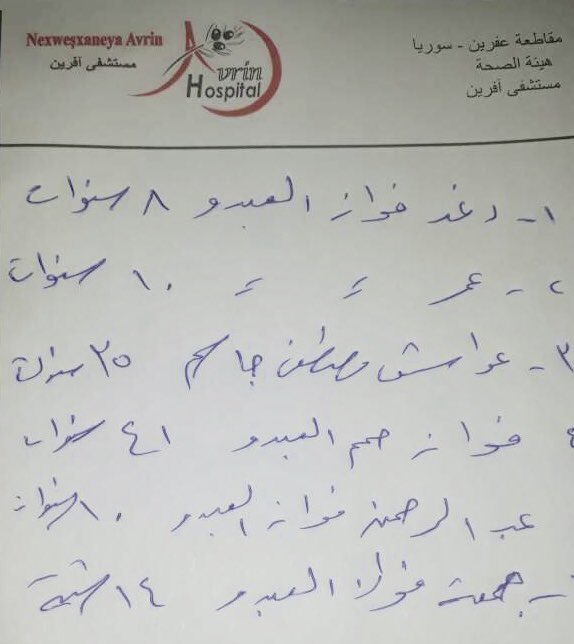 Nexweşxaneya Avrin
مستشفى آفرين
Avrin
Hospital
مقاطعة عفرين - سوريا
هيئة الصحة
مستشفى آفرين
١- رغد فواز العبدو ٨ سنوات
٢- عمر = = ١٠ سنوات
٣- عواش مصطفى جاسم ٣٥ سنة
فواز العبدو ٤١ سنوات
عبد الرحمن فواز العبدو ١٠ سنوات
جمعة فواز العبدو ١٤ سنة